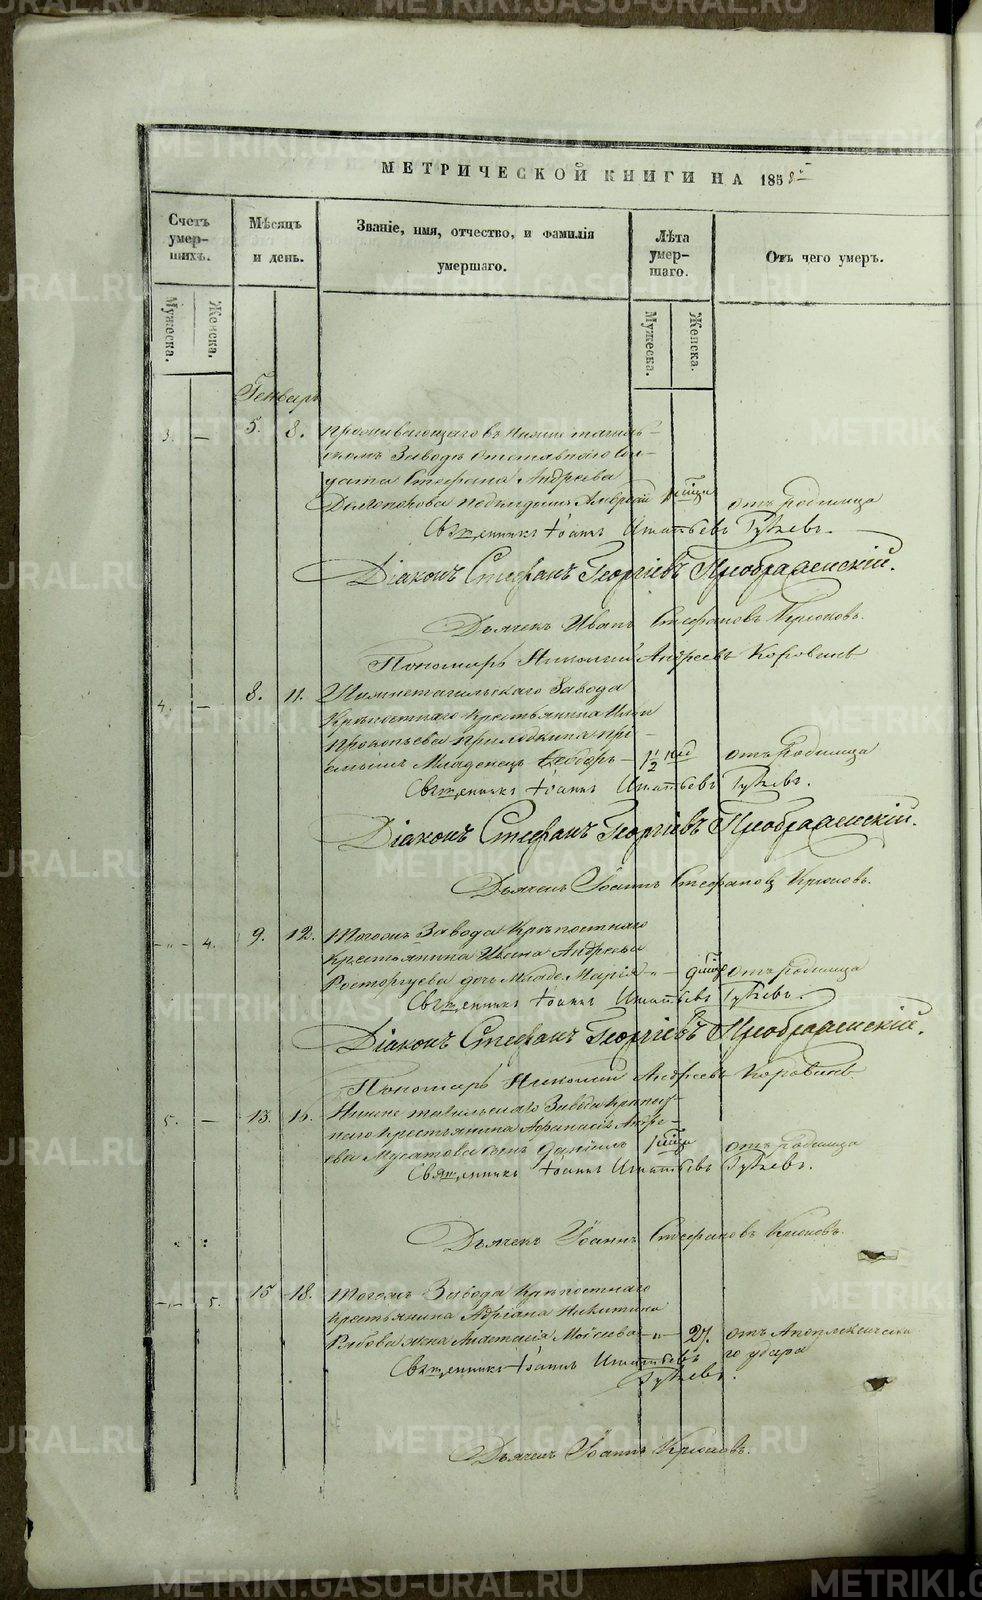 МЕТРИЧЕСКОЙ КНИГИ НА 1858
Счетъ умер-шихъ.
Мѣсяцъ и день.
Званіе, имя, отчество, и фамилія умершаго.
Лѣта умер-шаго.
Отъ чего умеръ.
Мужеска.
Женска.
Мужеска.
Женска.
Генварь
3. — 5. 8. Проживающаго въ Нижнетагиль-
скомъ Заводѣ Отставнаго Сол-
дата Стефана Андреева
подкидышъ отъ родимца
Священникъ Іоаннъ Игнатьевъ
Діаконъ Стефанъ Георгіевъ Преображенскій.
Дьячекъ Иванъ Стефановъ Крюковъ.
Пономарь Николай Андреевъ Коровинъ
4. — 8. 11. Нижнетагильскаго Завода
Крѣпостнаго Крестьянина
Прокопьева прі-
емышъ Младенецъ Ѳеодоръ — 1½ отъ родимца
Священникъ Іоаннъ Игнатьевъ
Діаконъ Стефанъ Георгіевъ Преображенскій.
Дьячекъ Іоаннъ Стефановъ Крюковъ.
— „ — 4. 9. 12. Тогожъ Завода Крѣпостнаго
Крестьянина Ивана Андреева
Расторгуева дочь Младе. Марія — „ — отъ родимца
Священникъ Іоаннъ Игнатьевъ
Діаконъ Стефанъ Георгіевъ Преображенскій.
Пономарь Николай Андреевъ Коровинъ
5. — 13. 16. Нижнетагильскаго Завода Крѣпост-
наго Крестьянина Афанасія Андре-
ева Мусатова сынъ Даніилъ отъ родимца
Священникъ Іоаннъ Игнатьевъ
Дьячекъ Іоаннъ Стефановъ Крюковъ.
— „ — 5. 15 18. Тогожъ Завода Крѣпостнаго
Крестьянина Адріана Никитина
Рябова жена Анастасія Моисеева — „ — 27. отъ Апоплексическа
го удара
Священникъ Іоаннъ Игнатьевъ
Дьячекъ Іоаннъ Крюковъ.
METRIKI.GASO-URAL.RU